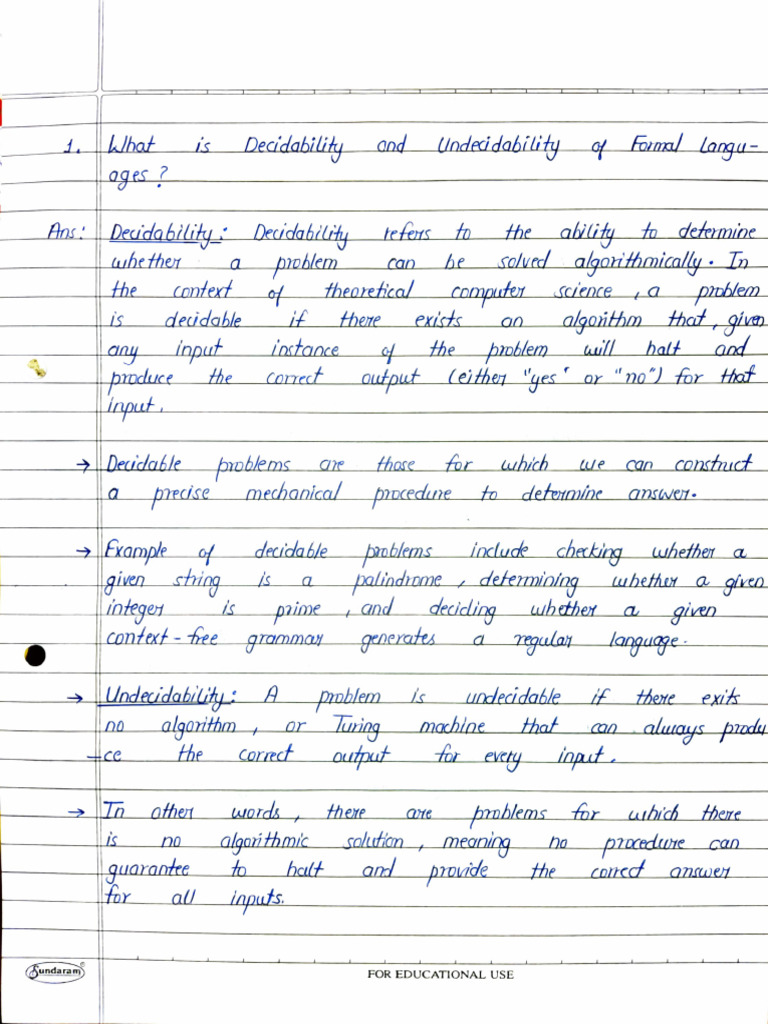 1. What is Decidability and Undecidability of Formal Langu-
ages?
Ans: Decidability: Decidability refers to the ability to determine
whether a problem can be solved algorithmically. In
the context of theoretical computer science, a problem
is decidable if there exists an algorithm that, given
any input instance of the problem will halt and
produce the correct output (either "yes" or "no") for that
input.
→ Decidable problems are those for which we can construct
a precise mechanical procedure to determine answer.
→ Example of decidable problems include checking whether a
given string is a palindrome, determining whether a given
integer is prime, and deciding whether a given
context-free grammar generates a regular language.
→ Undecidability: A problem is undecidable if there exits
no algorithm, or Turing machine that can always produ
-ce the correct output for every input.
→ In other words, there are problems for which there
is no algorithmic solution, meaning no procedure can
guarantee to halt and provide the correct answer
for all inputs.
Sundaram®
FOR EDUCATIONAL USE